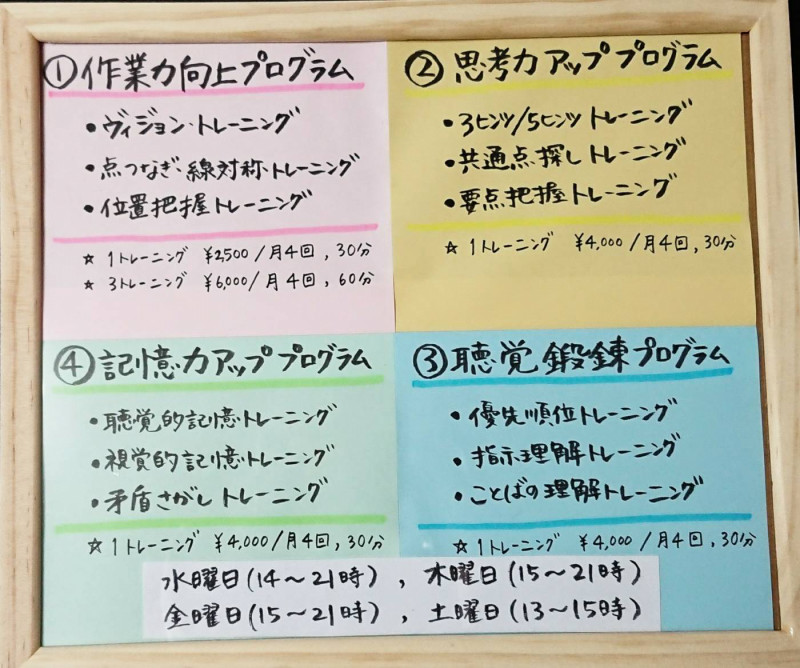 ① 作業力向上プログラム
・ヴィジョン・トレーニング
・点つなぎ・線対称・トレーニング
・位置把握トレーニング
☆ 1トレーニング ¥2,500/月4回, 30分
☆ 3トレーニング ¥6,000/月4回, 60分
② 思考力アッププログラム
・3ヒンツ/5ヒンツ トレーニング
・共通点探しトレーニング
・要点把握トレーニング
☆ 1トレーニング ¥4,000/月4回, 30分
④ 記憶力アッププログラム
・聴覚的記憶トレーニング
・視覚的記憶トレーニング
・矛盾さがしトレーニング
☆ 1トレーニング ¥4,000/月4回, 30分
③ 聴覚鍛錬プログラム
・優先順位トレーニング
・指示理解トレーニング
・ことばの理解トレーニング
☆ 1トレーニング ¥4,000/月4回, 30分
水曜日(14～21時), 木曜日(15～21時)
金曜日(15～21時), 土曜日(13～15時)